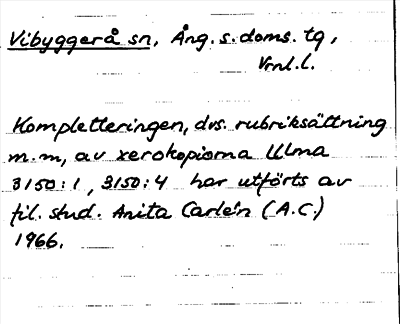 Vibyggerå sn, Ång. s. doms. tg,
Vrnl. l.
Kompletteringen, dvs. rubriksättning
m.m, av xerokopiorna ULma
3150:1, 3150:4 har utförts av
fil. stud. Anita Carleín (A.C.)
1966.